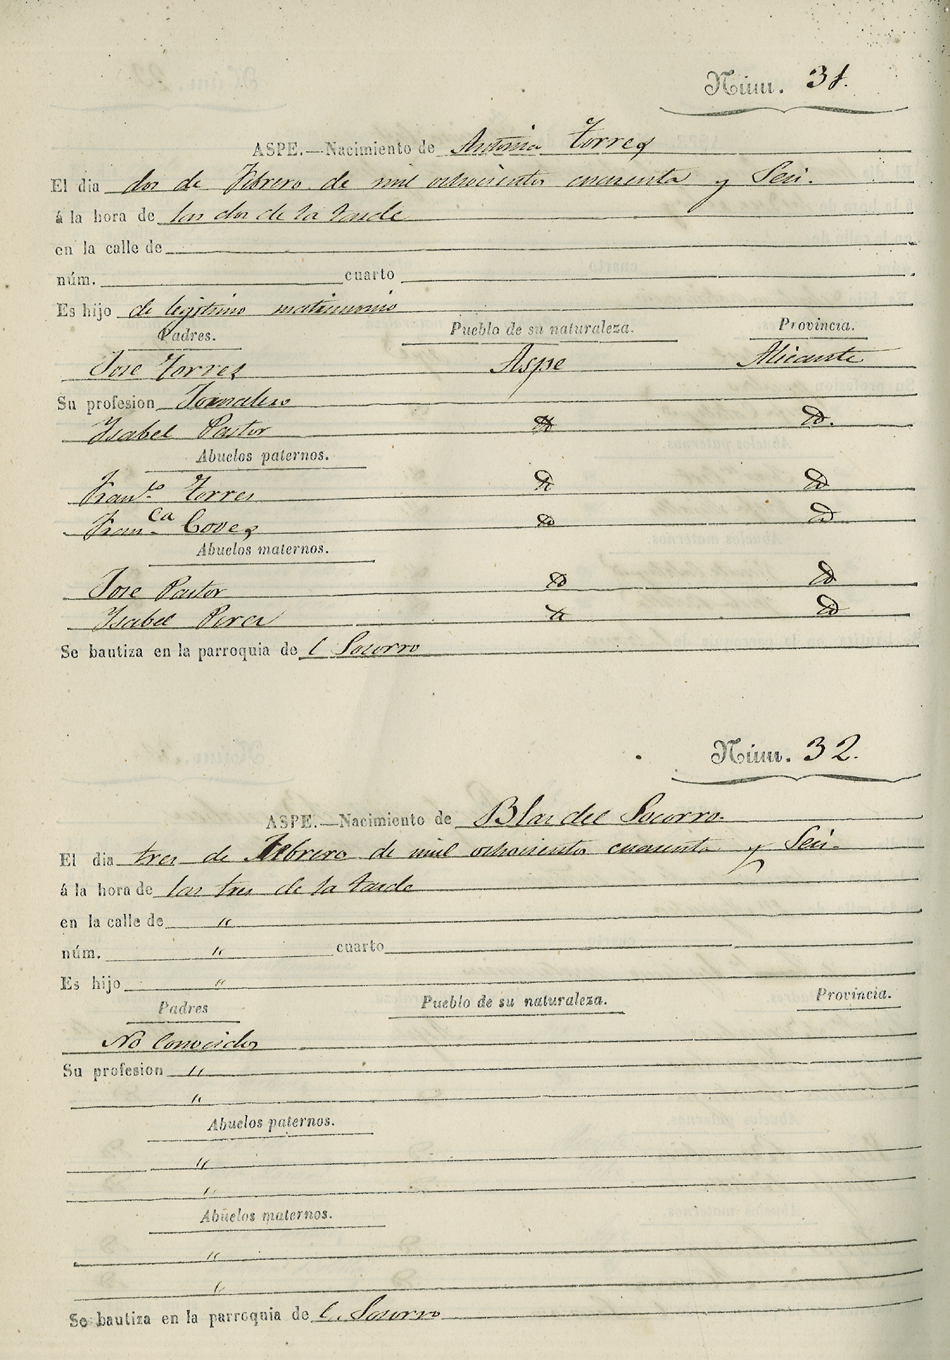 Núm. 31.
ASPE.—Nacimiento de Antonia Torres
El dia dos de Febrero de mil ochocientos cuarenta y Seis.
á la hora de las dos de la tarde
en la calle de
núm. cuarto
Es hijo de legitimo matrimonio
Padres. Pueblo de su naturaleza. Provincia.
Jose Torres Aspe Alicante
Su profesion Jornalero
Isabel Pastor Id Id.
Abuelos paternos.
Fran.co Torres Id Id
Fran.ca Coves Id Id
Abuelos maternos.
Jose Pastor Id Id
Isabel Id Id
Se bautiza en la parroquia de l Socorro
Núm. 32.
ASPE.—Nacimiento de Blas del Socorro.
El dia tres de Febrero de mil ochocientos cuarenta y Seis.
á la hora de las tres de la tarde
en la calle de "
núm. " cuarto
Es hijo "
Padres Pueblo de su naturaleza. Provincia.
No Conocidos
Su profesion "
"
Abuelos paternos.
"
"
Abuelos maternos.
"
"
Se bautiza en la parroquia de l. Socorro